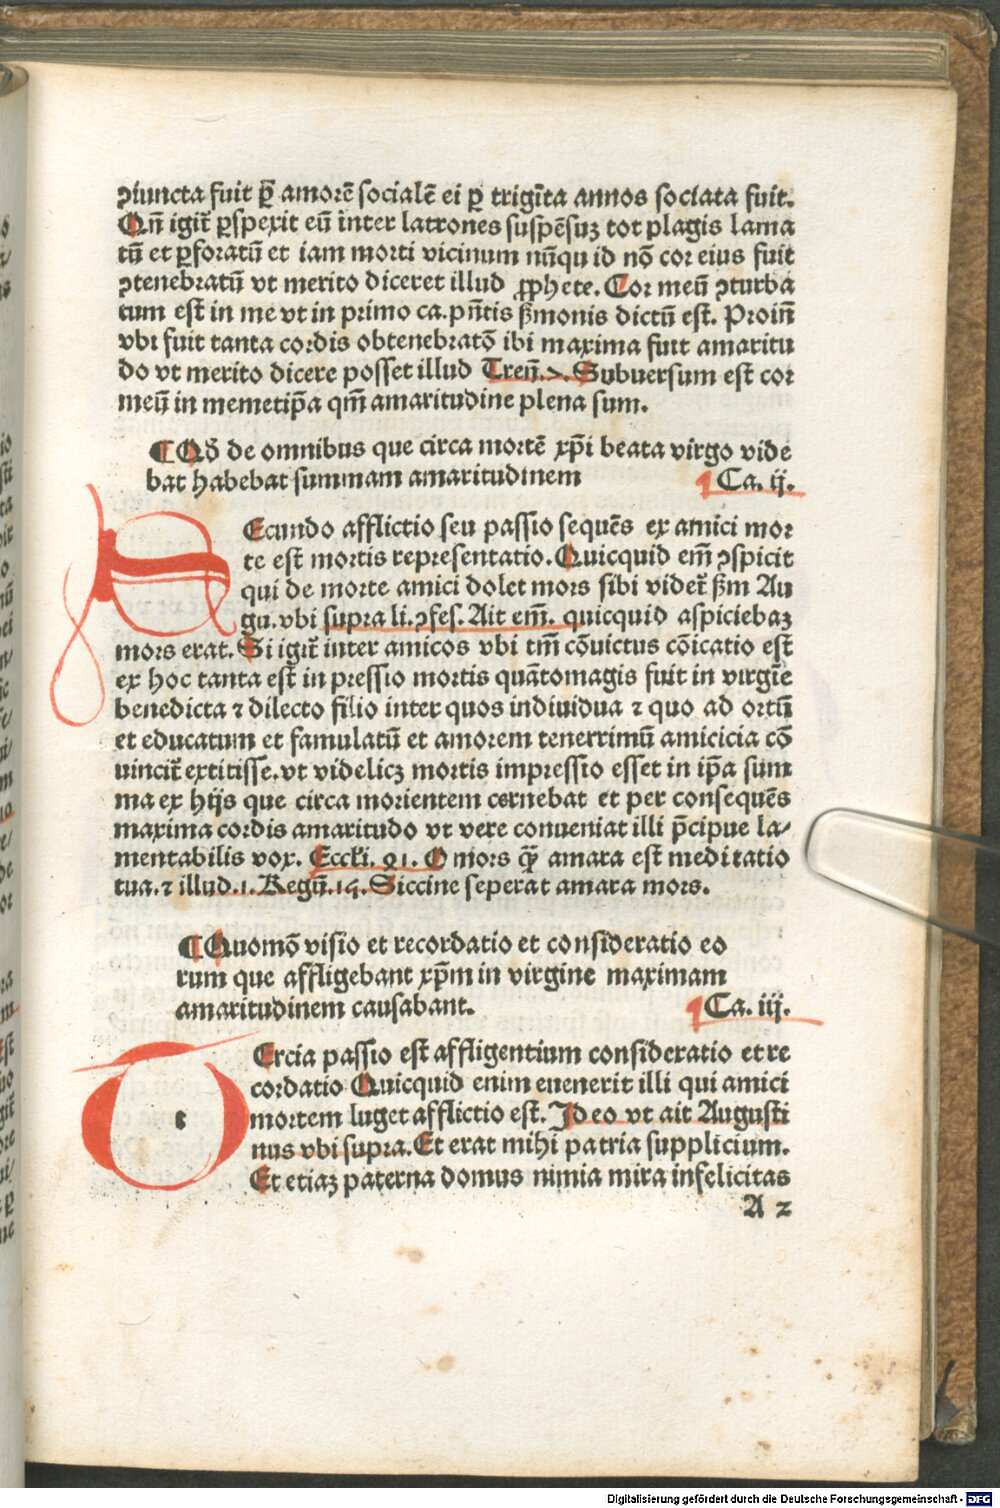 ꝯiuncta fuit ꝑ̄ amorē socialē ei ꝑ trigīta annos sociata fuit.
Qn̄ igit̄ ꝑspexit eū inter latrones suspēsuꝫ tot plagis lama
tū et ꝑforatū et iam morti vicinum nūquid nō cor eius fuit
ꝯtenebratū vt merito diceret illud ꝓphete. Cor meū ꝯturba
tum est in me vt in primo ca. pn̄tis ßmonis dictū est. Proin̄
vbi fuit tanta cordis obtenebratō ibi maxima fuit amaritu
do vt merito dicere posset illud Tren̄. Subuersum est cor
meū in memetip̄a qm̄ amaritudine plena sum.
¶ Qð de omnibus que circa mortē xp̄i beata virgo vide
bat habebat summam amaritudinem Ca. ij.
Ecundo afflictio seu passio sequēs ex amici mor
te est mortis representatio. Quicquid em̄ ꝯspicit
qui de morte amici dolet mors sibi videt̄ ßm Au
gu. vbi supra li. ꝯfes. Ait em̄. quicquid aspiciebaꝫ
mors erat. Si igit̄ inter amicos vbi tm̄ cōuictus cōicatio est
ex hoc tanta est in pressio mortis quātomagis fuit in virgīe
benedicta ⁊ dilecto filio inter quos indiuidua ⁊ quo ad ortū
et educatum et famulatū et amorem tenerrimū amicicia cō
uincit̄ extitisse. vt videlicꝫ mortis impressio esset in ip̄a sum
ma ex hijs que circa morientem cernebat et per consequēs
maxima cordis amaritudo vt vere conueniat illi p̄cipue la⸗
mentabilis vox. Eccłi. 41. O mors ꝙ̄ amara est meditatio
tua. ⁊ illud. 1. Regū. 15. Siccine seperat amara mors.
¶ Quomō visio et recordatio et consideratio eo
rum que affligebant xp̄m in virgine maximam
amaritudinem causabant. Ca. iij.
T Ercia passio est affligentium consideratio et re
cordatio Quicquid enim euenerit illi qui amici
mortem luget afflictio est. Ideo vt ait Augusti
nus vbi supra. Et erat mihi patria supplicium.
Et etiaꝫ paterna domus nimia mira infelicitas
A 2
Digitalisierung gefördert durch die Deutsche Forschungsgemeinschaft - DFG